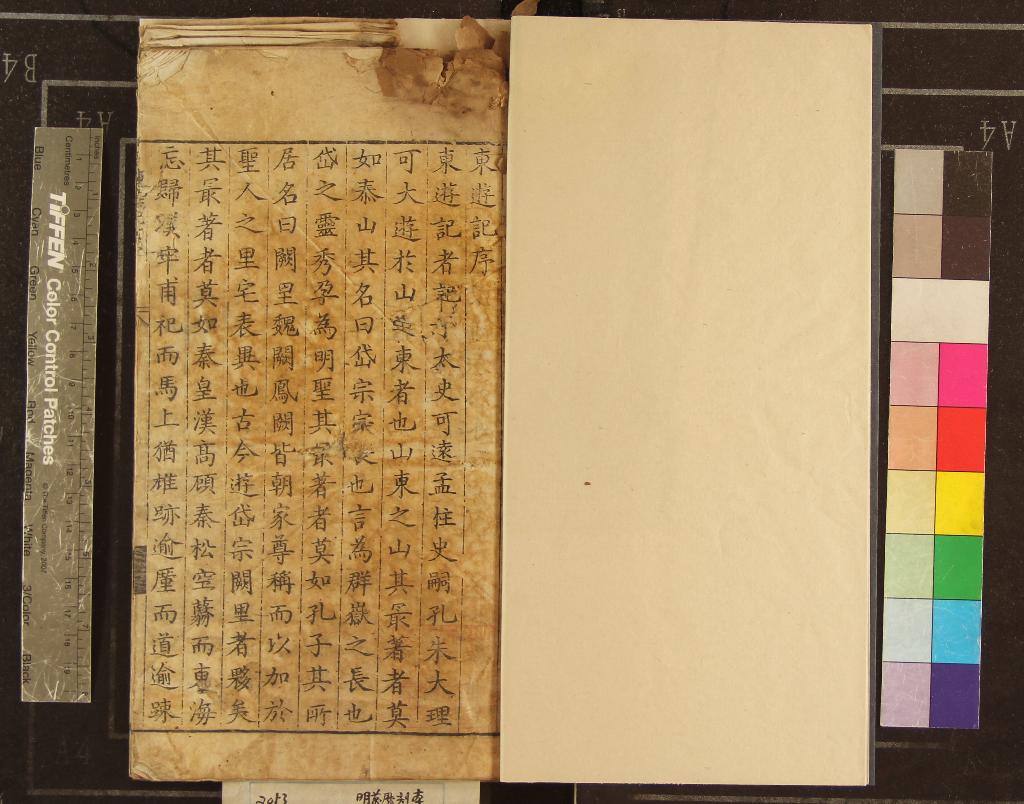 東遊記序
東遊記者記太史可遠孟柱史嗣孔朱大理
可大遊於山東者也山東之山其最著者莫
如泰山其名曰岱宗宗長也言為群嶽之長也
岱之靈秀孕為明聖其最著者莫如孔子其所
居名曰闕里魏闕鳳闕皆朝家尊稱而以加於
聖人之里宅表異也古今遊岱宗闕里者夥矣
其最著者莫如秦皇漢高顧秦松空蓊而東海
忘歸漢牢甫祀而馬上猶椎跡逾厪而道逾踈
B4
A4
A4
A4
Inches
Centimetres
TIFFEN Color Control Patches
© The Tiffen Company, 2007
Blue
Cyan
Green
Yellow
Red
Magenta
White
3/Color
Black
2053
明萬曆刻本